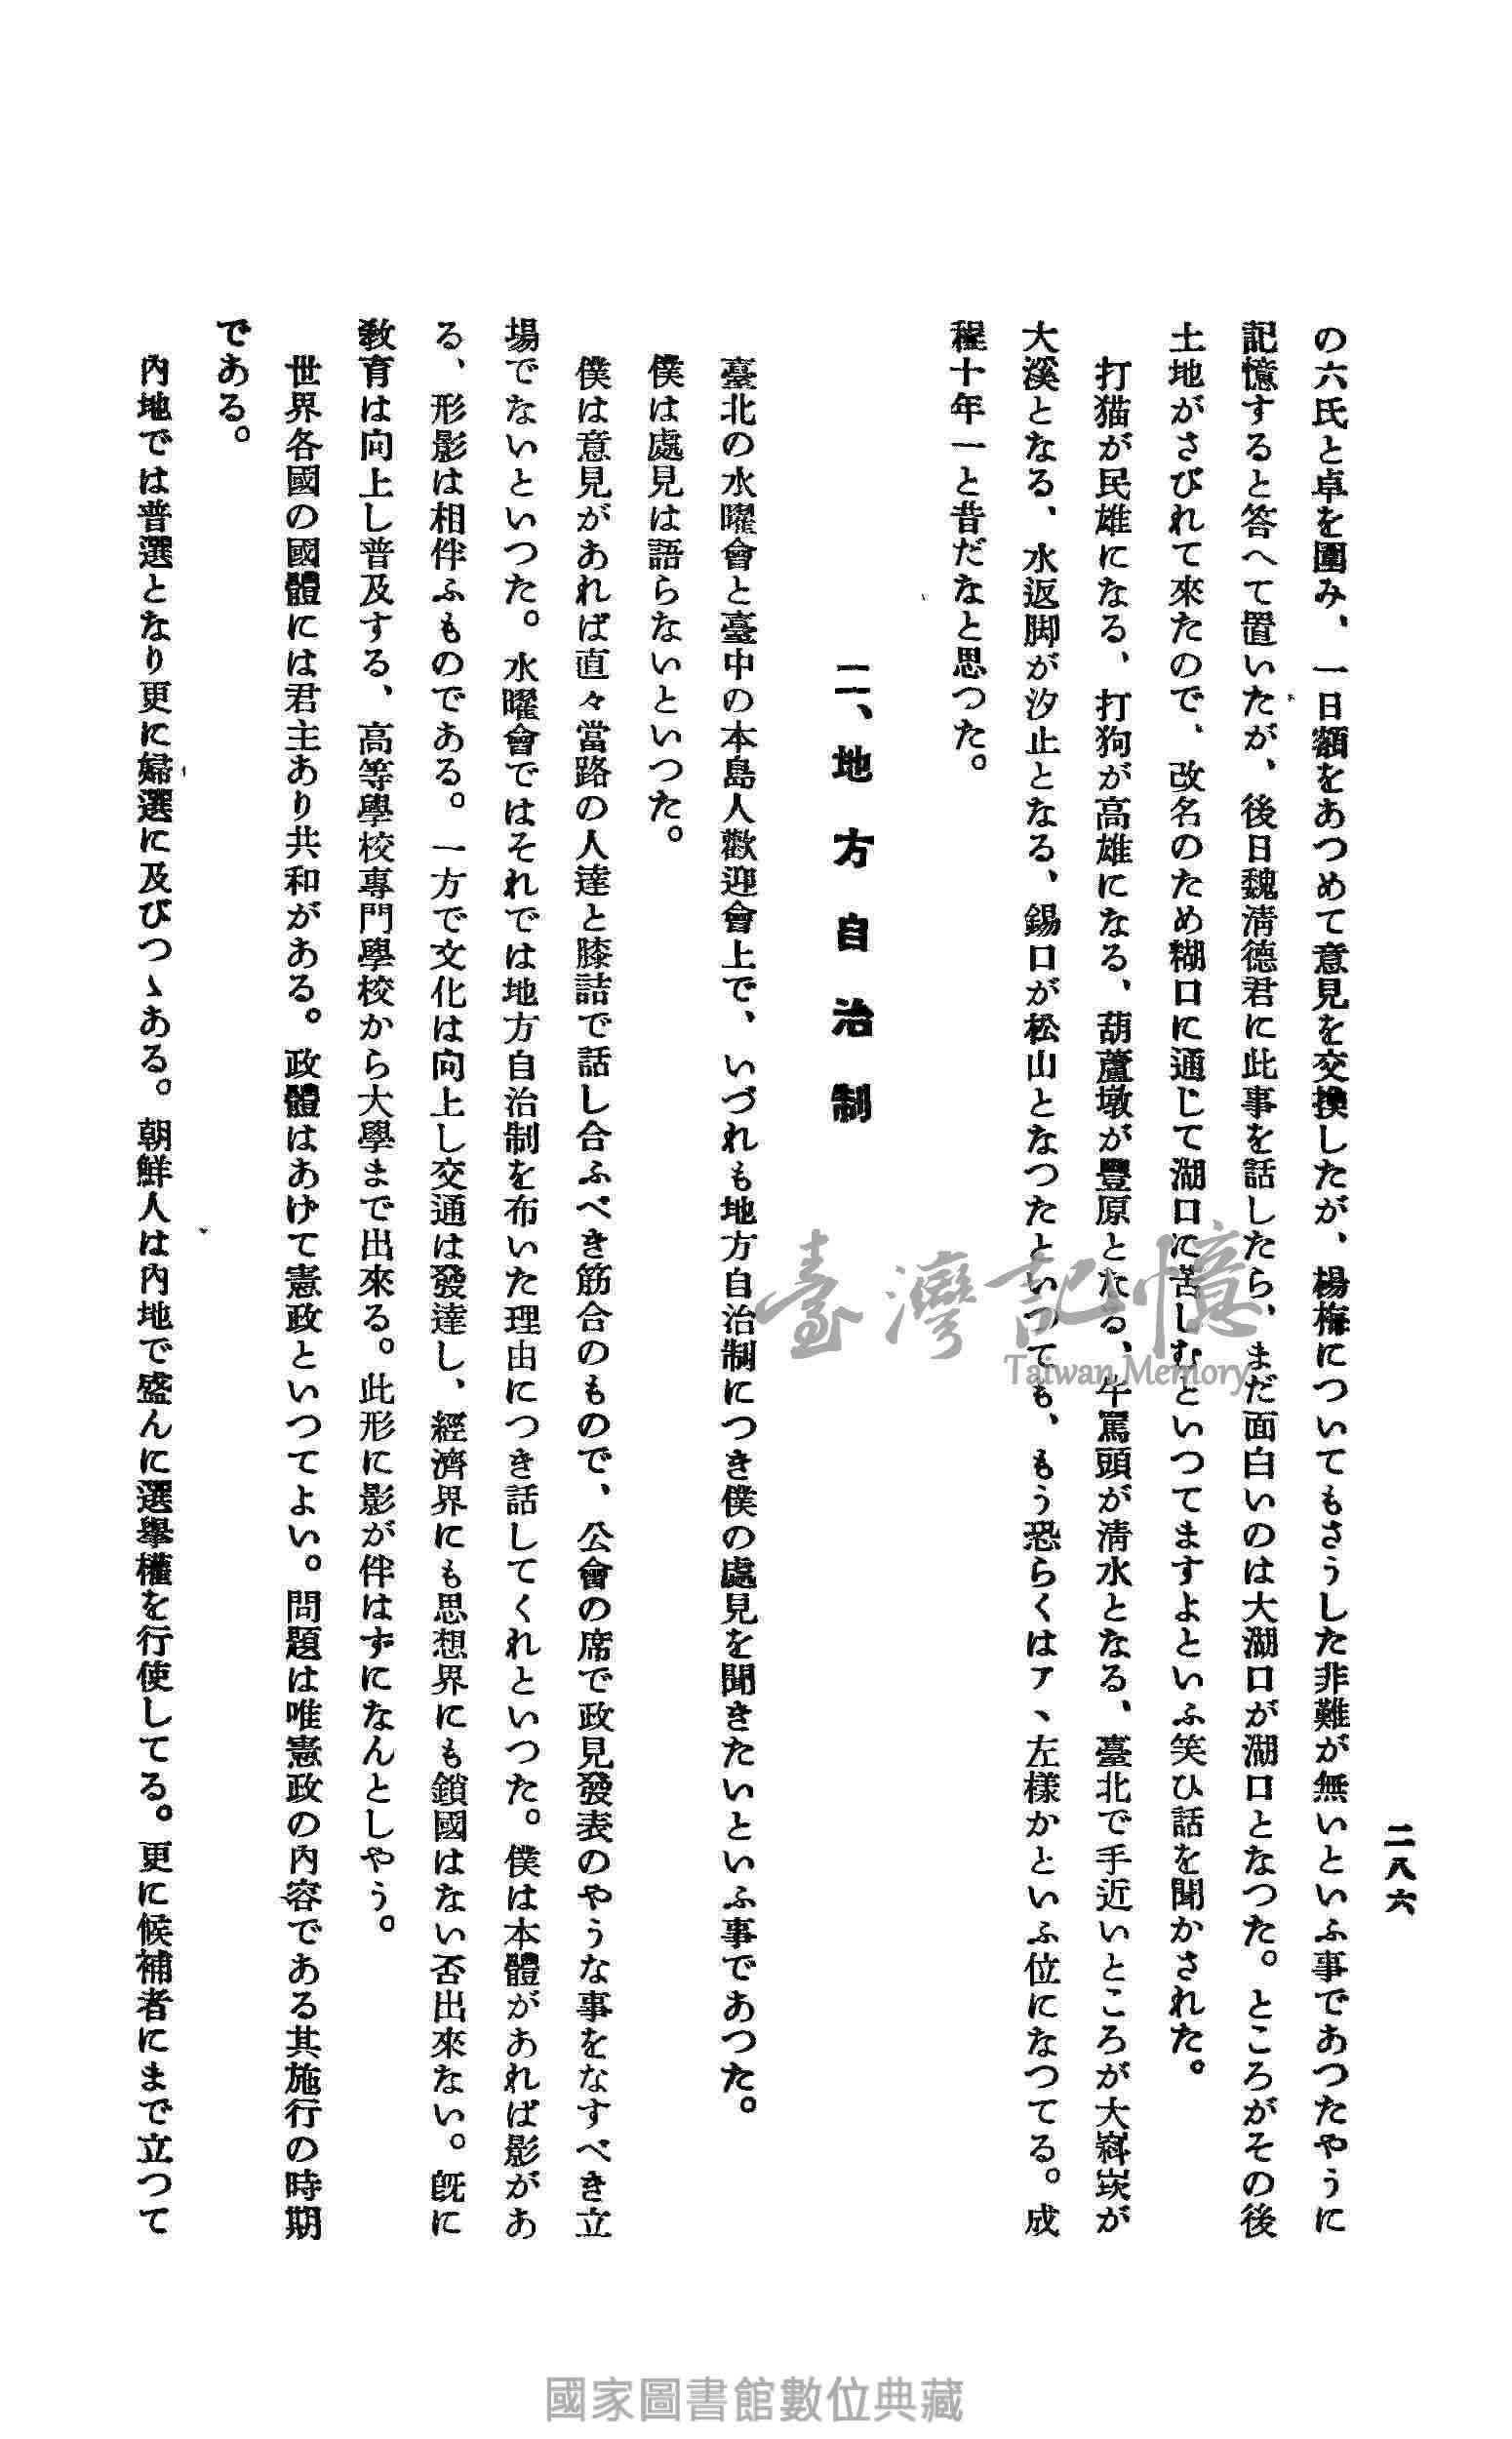 二八六
の六氏と卓を圍み、一日額をあつめて意見を交換したが、楊梅についてもさうした非難が無いといふ事であつたやうに
記憶すると答へて置いたが、後日魏淸德君に此事を話したら、まだ面白いのは大湖口が湖口となつた。ところがその後
土地がさびれて來たので、改名のため糊口に通じて湖口に苦しむといつてますよといふ笑ひ話を聞かされた。
打猫が民雄になる、打狗が高雄になる、葫蘆墩が豐原となる、牛罵頭が淸水となる、臺北で手近いところが大嵙崁が
大溪となる、水返脚が汐止となる、錫口が松山となつたといつても、もう恐らくはア、左樣かといふ位になつてる。成
程十年一と昔だなと思つた。
二、地方自治制
臺北の水曜會と臺中の本島人歡迎會上で、いづれも地方自治制につき僕の處見を聞きたいといふ事であつた。
僕は處見は語らないといつた。
僕は意見があれば直々當路の人達と膝詰で話し合ふべき筋合のもので、公會の席で政見發表のやうな事をなすべき立
場でないといつた。水曜會ではそれでは地方自治制を布いた理由につき話してくれといつた。僕は本體があれば影があ
る、形影は相伴ふものである。一方で文化は向上し交通は發達し、經濟界にも思想界にも鎖國はない否出來ない。旣に
敎育は向上し普及する、高等學校專門學校から大學まで出來る。此形に影が伴はずになんとしやう。
世界各國の國體には君主あり共和がある。政體はあげて憲政といつてよい。問題は唯憲政の內容である其施行の時期
である。
內地では普選となり更に婦選に及びつゝある。朝鮮人は內地で盛んに選擧權を行使してる。更に候補者にまで立つて
臺灣記憶
Taiwan Memory
國家圖書館數位典藏